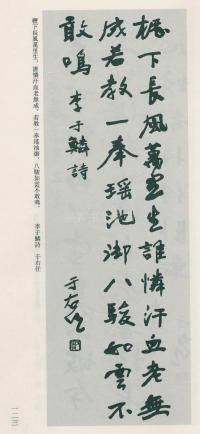 櫪下長風萬里生誰憐汗血老無
成若教一奉瑤池御八駿如雲不
敢鳴 李于鱗詩
于右任
櫪下長風萬里生,誰憐汗血老無成,若教一奉瑤池御,八駿如雲不敢鳴。 李于鱗詩 于右任
一二三